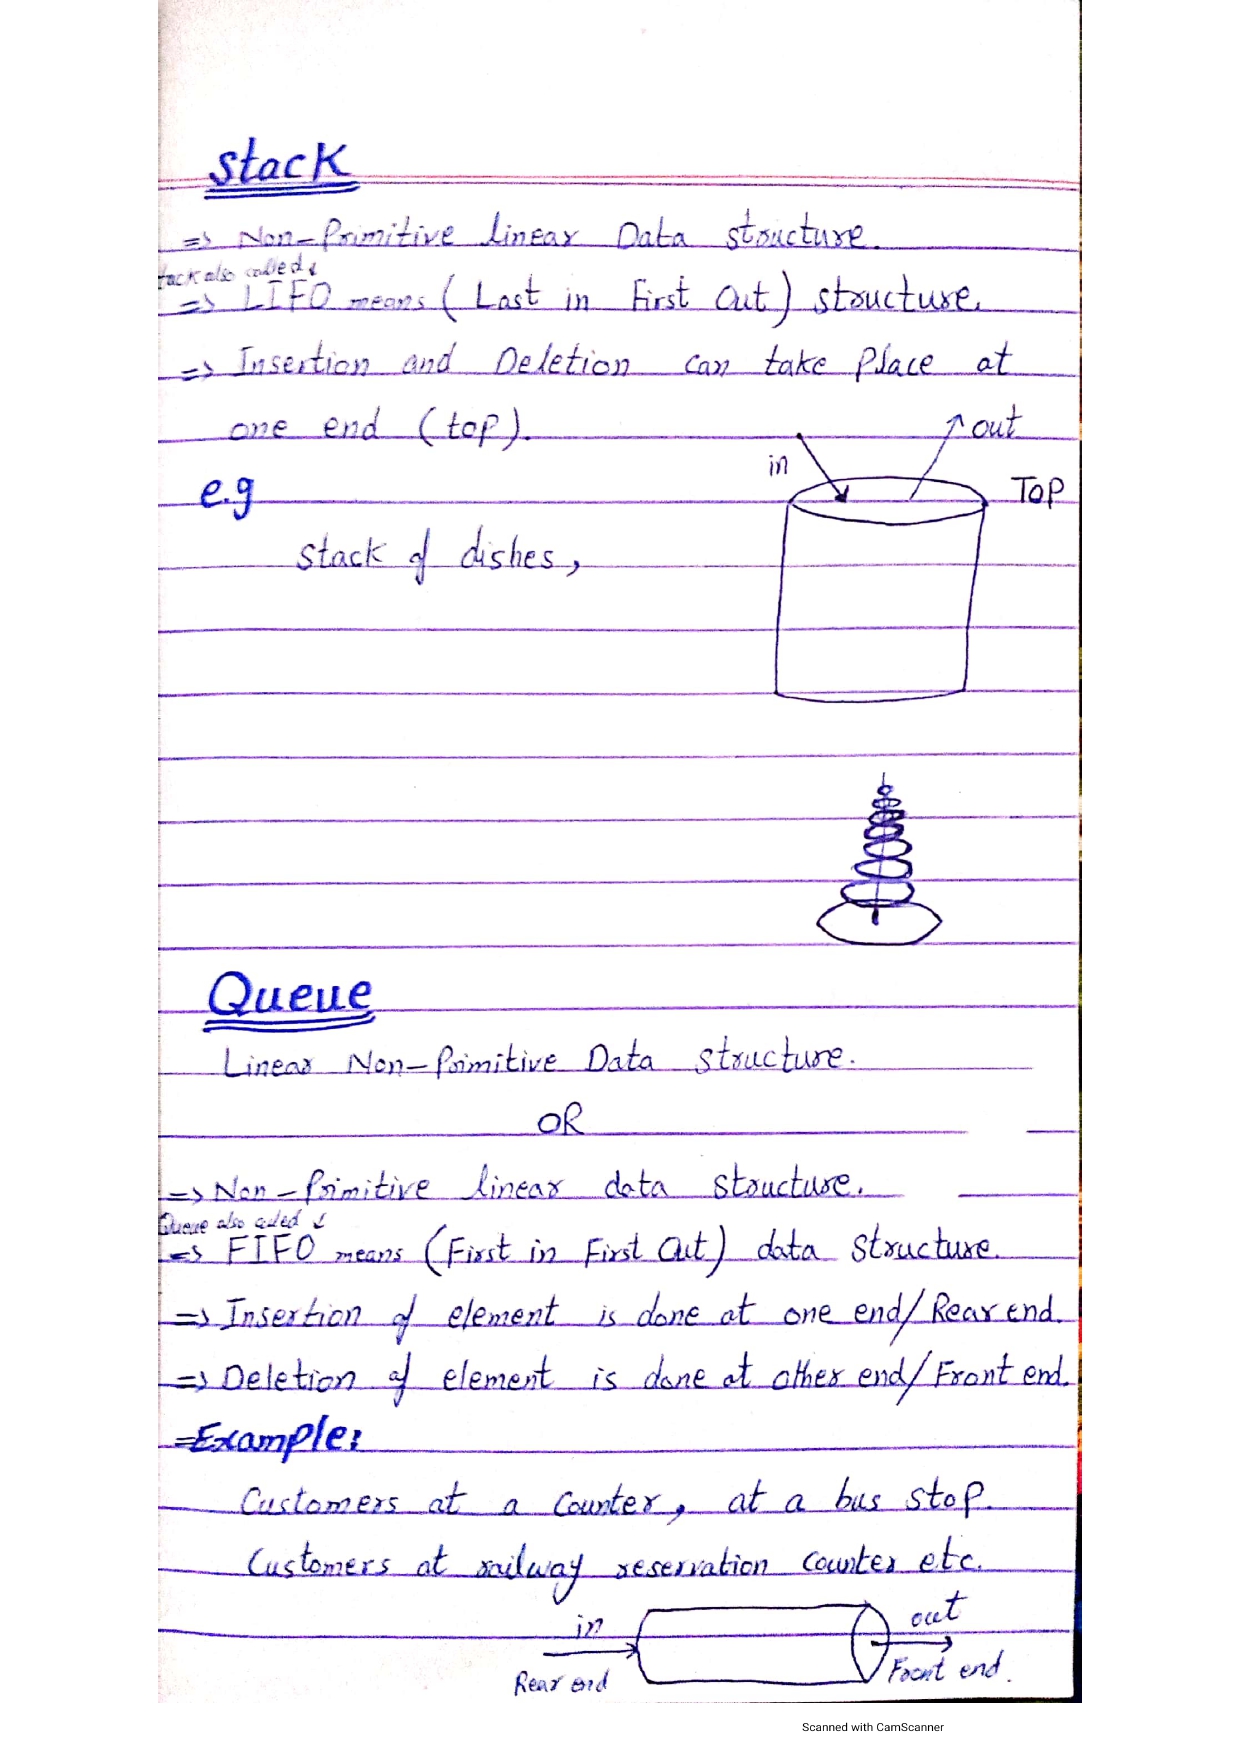 Stack
=> Non-Primitive linear Data structure.
Stack also called ↓
=> LIFO means (Last in First Out) structure.
=> Insertion and Deletion can take Place at
one end (top).
in
out
TOP
e.g
Stack of dishes,
Queue
Linear Non-Primitive Data structure.
OR
=> Non-Primitive linear data structure.
Queue also called ↓
=> FIFO means (First in First Out) data structure.
=> Insertion of element is done at one end/Rear end.
=> Deletion of element is done at other end/Front end.
=Example:
Customers at a Counter, at a bus stop.
Customers at railway reservation counter etc.
in
out
Rear end
Front end.
Scanned with CamScanner